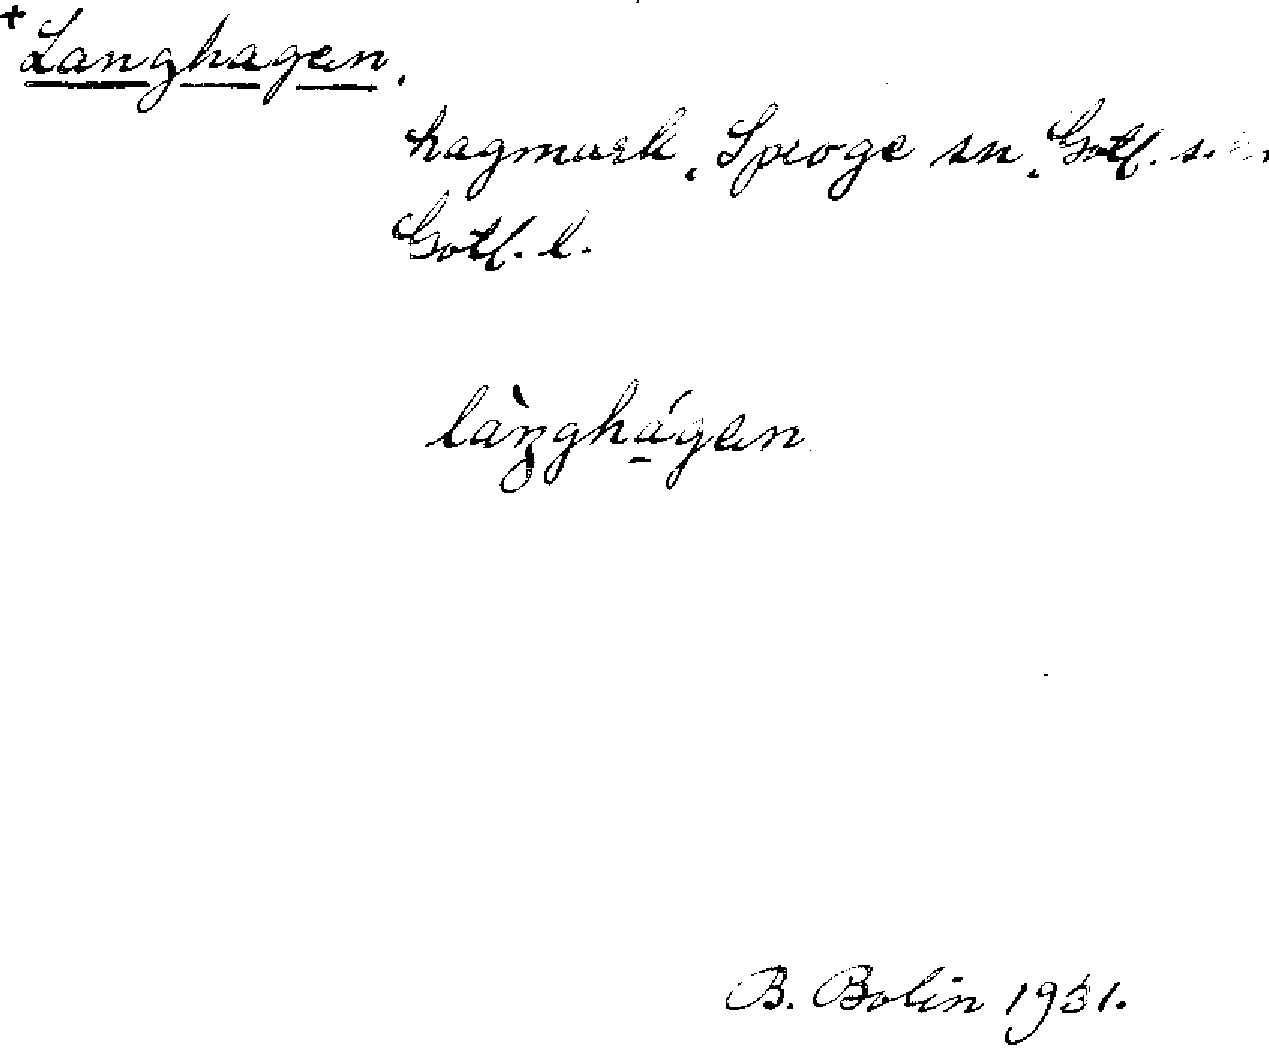 +Langhagen.
hagmark, Sproge sn, Gotl. s.
Gotl. l.
làŋghágen
B. Bolin 1931.